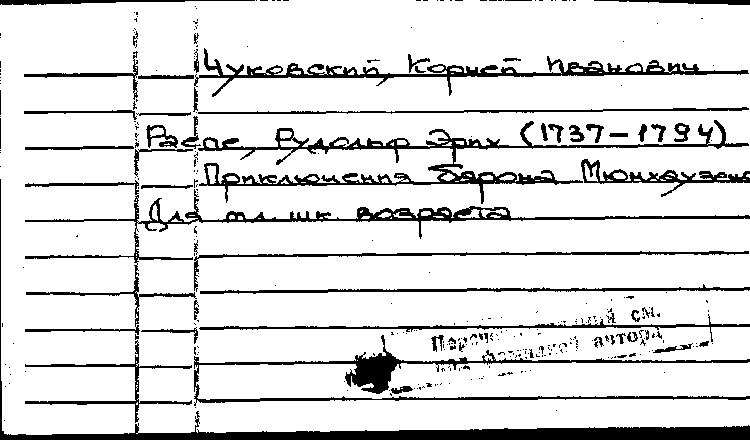 Чуковский, Корней Иванович
Распе, Рудольф Эрих (1737-1794)
Приключения барона Мюнхаузена
Для мл. шк. возраста
см.
под фамилией автора